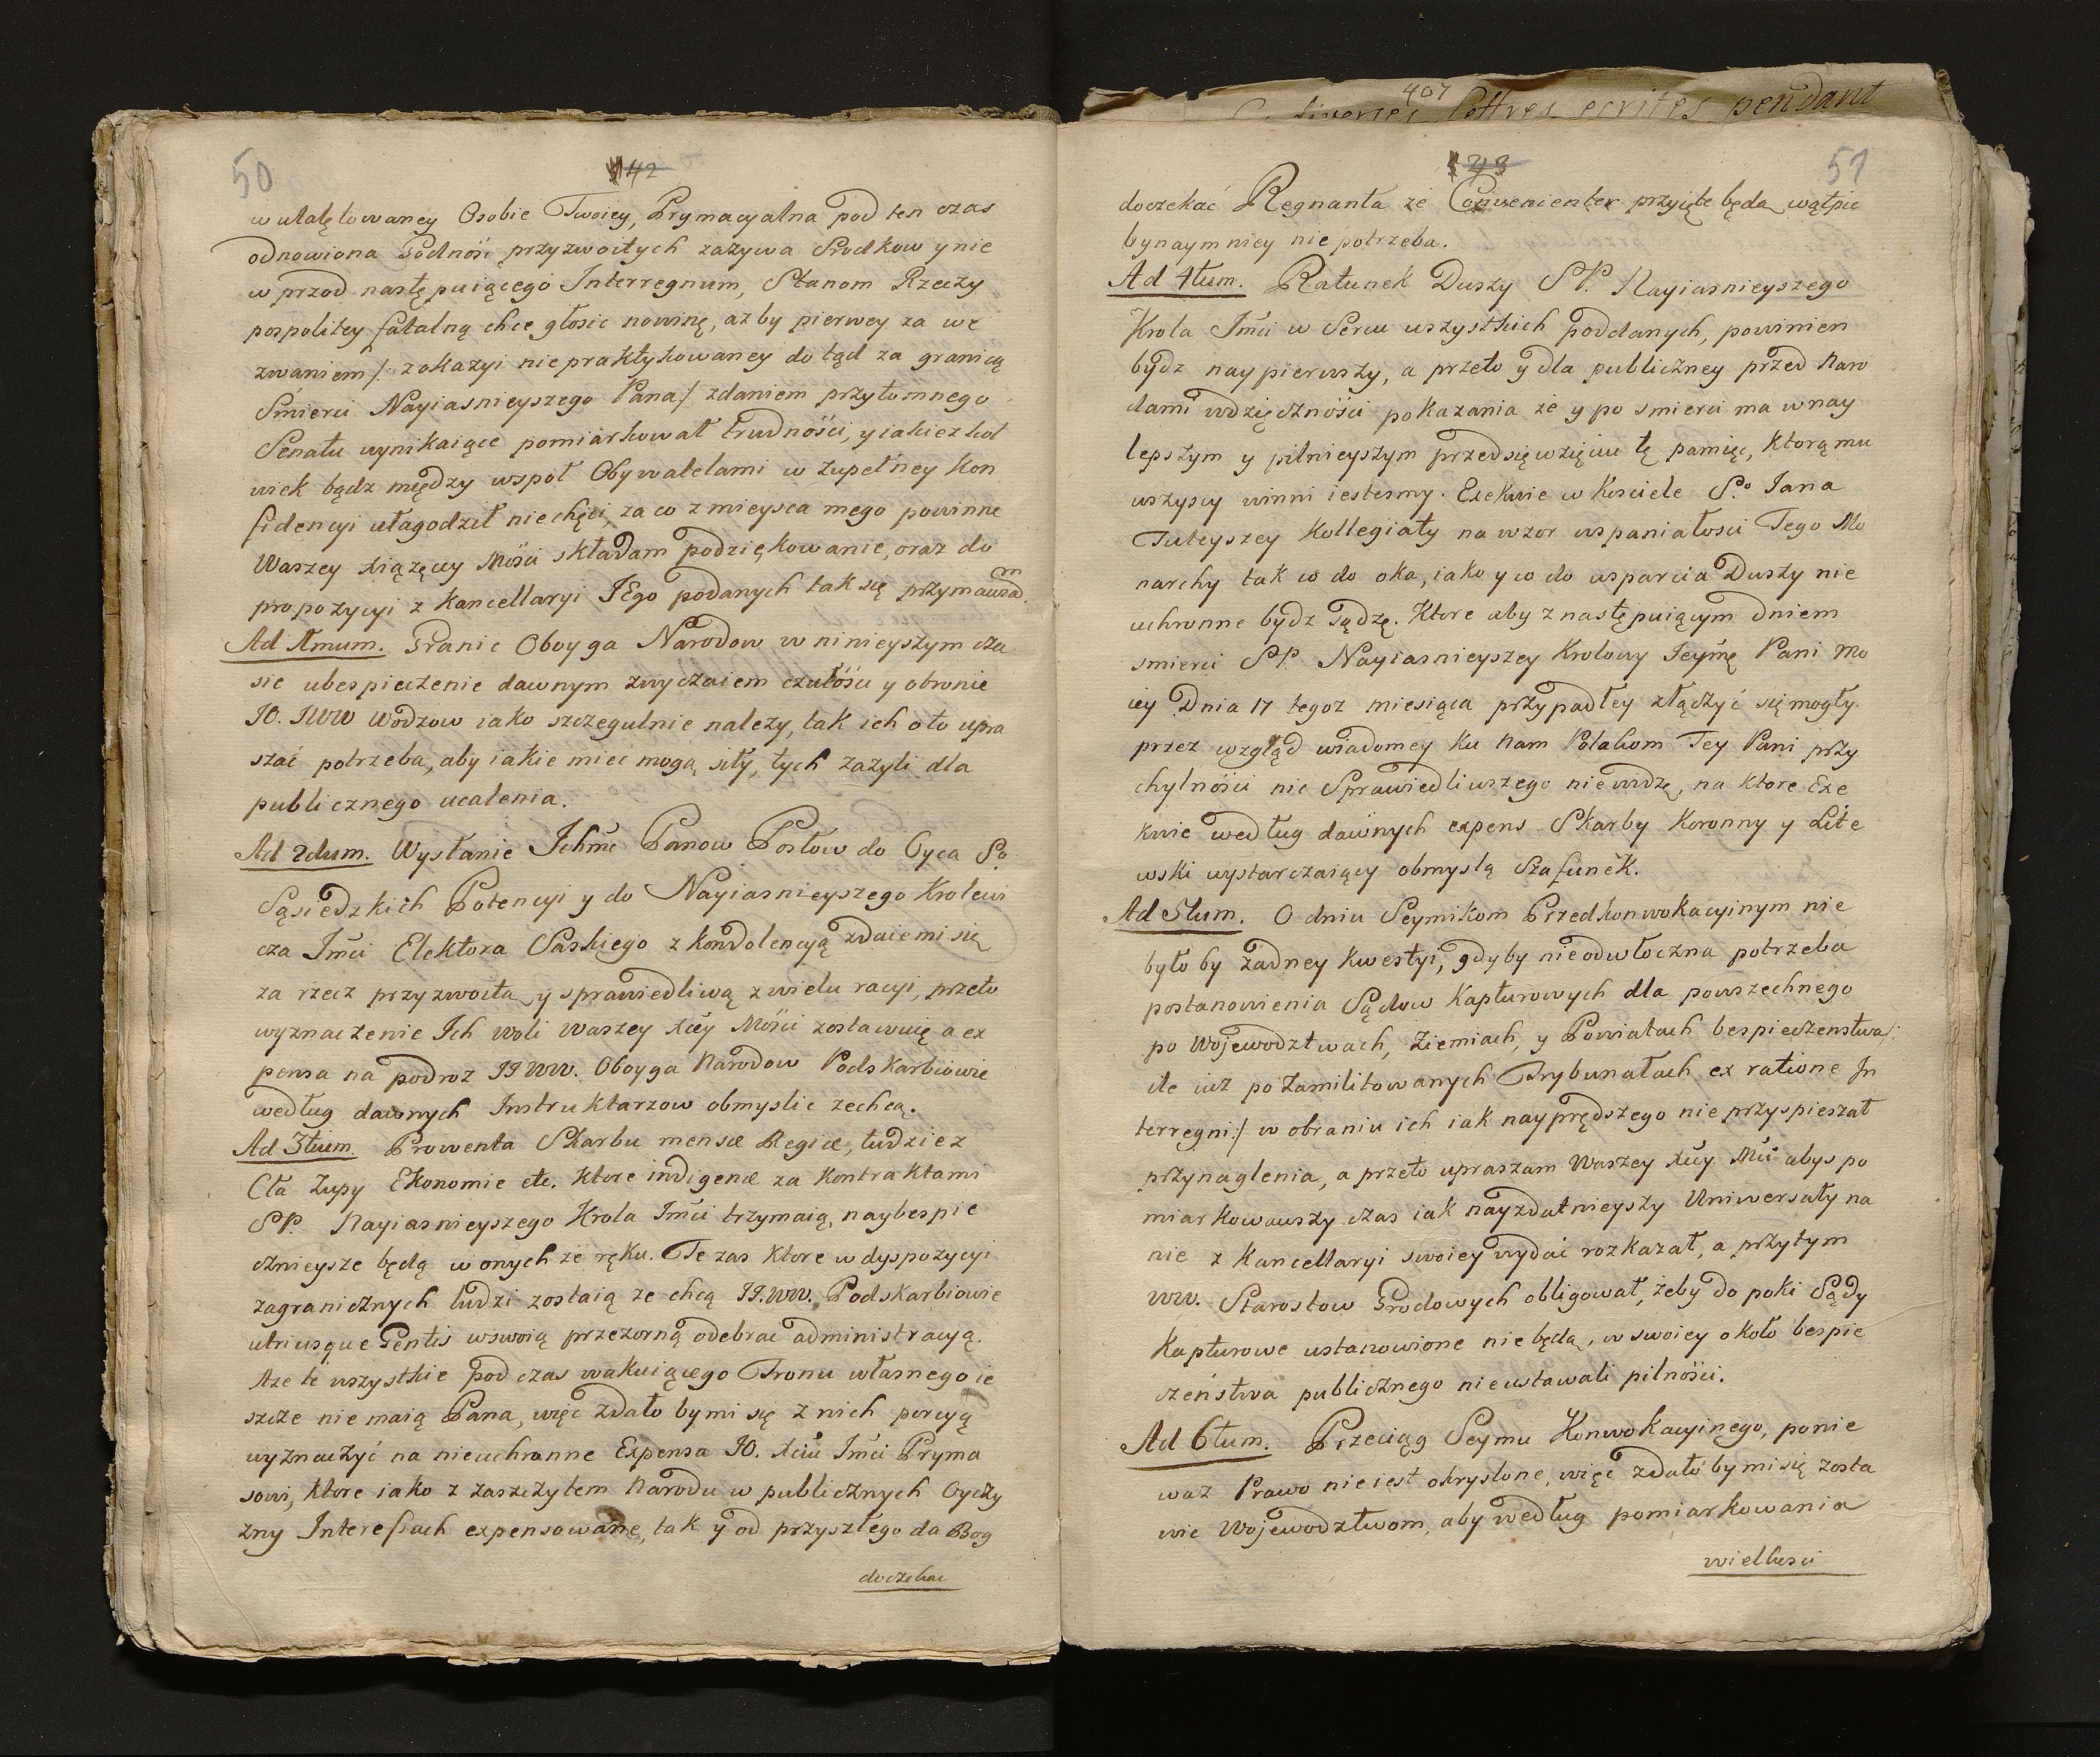 50
142
w utalętowaney Osobie Twoiey, Prymacyalna pod ten czas
odnowiona Godność przyzwoitych zazywa Srodkow y nie
w przod następuiącego Interregnum, Stanom Rzeczy
pospolitey fatalną chce głosic nowinę, azby pierwey za we
zwaniem /: z okazyi nie praktykowaney do tąd za granicą
Smierci Nayiasnieyszego Pana :/ zdaniem przytomnego
Senatu wynikaiące pomiarkował trudności, y iakiezkol
wiek bądz między wspoł Obywatelami w zupełney Kon
fidencyi ułagodził niechęci, za co z mieysca mego powinne
Waszey xiązęcey Mości składam podziękowanie, oraz do
propozycyi z Kancellaryi JEgo podanych tak się przymawiam
Ad 1mum. Granic Oboyga Narodow w ninieyszym cza
sie ubespieczenie dawnym zwyczaiem czułości y obronie
JO. JWW Wodzow iako szczegulnie nalezy, tak ich o to upra
szać potrzeba, aby iakie miec mogą siły, tych zazyli dla
publicznego ucalenia.
Ad 2dum. Wysłanie Ichmć Panow Posłow do Oyca So.
Sąsiedzkich Potencyi y do Nayiasnieyszego Krolewi
cza Jmci Elektora Saskiego z kondolencyą zdaie mi się
za rzecz przyzwoitą y sprawiedliwą z wielu racyi, przeto
wyznaczenie Ich woli Waszey xcey Mości zostawuię a ex
pensa na podroz JJWW. Oboyga Narodow Podskarbiowie
według dawnych Instruktarzow obmyslic zechcą.
Ad 3tium. Prowenta Skarbu mensæ Regiæ, tudziez
Cła Zupy Ekonomie etc. Ktore indigenæ za Kontraktami
SP. Nayiasnieyszego Krola Jmci trzymaią, naybespie
cznieysze będą w onych ze ręku. Te zas Ktore w dyspozycyi
zagranicznych ludzi zostaią ze chcą JJ.WW. Podskarbiowie
utriusque Gentis w swoią przezorną odebrac administracyą.
Aze te wszystkie pod czas wakuiącego Tronu własnego ie
szcze nie maią Pana, więc zdało by mi się z nich porcyą
wyznaczyć na nieuchronne Expensa JO. Xciu Jmci Pryma
sowi, Ktore iako z zaszczytem Narodu w publicznych Oyczy
zny Interessach expensowane, tak y od przyszłego da Bog
doczekac
407
diverses lettres ecrites pendant
143
51
doczekać Regnanta ze Convenienter przyięte będą wątpic
bynaymniey nie potrzeba.
Ad 4tum. Ratunek Duszy SP. Nayiasnieyszego
Krola Jmci w Sercu wszystkich poddanych, powinien
bydz naypierwszy, a przeto y dla publiczney przed Naro
dami wdzięczności pokazania ze y po smierci ma w nay
lepszym y pilnieyszym przedsięwzięciu tę pamięc, Ktorą mu
wszyscy winni iestesmy. Exekwie w Kosciele So. Jana
Tuteyszey Kollegiaty na wzor wspaniałosci Tego Mo
narchy tak co do oka, iako y co do wsparcia Duszy nie
uchronne bydz sądzę. Ktore aby z następuiącym dniem
smierci SP. Nayiasnieyszey Krolowy Jeymę Pani Mo
iey Dnia 17 tegoz miesiąca przypadłey złączyć się mogły
przez wzgląd wiadomey Ku Nam Polakom Tey Pani przy
chylności nic Sprawiedliwszego nie widzę, na Ktore Exe
kwie według dawnych expens Skarby Koronny y Lite
wski wystarczaiący obmyslą Szafunek.
Ad 5tum. O dniu Seymikom Przedkonwokacyinym nie
było by zadney Kwestyi, gdyby nieodwłoczna potrzeba
postanowienia Sądow Kapturowych dla powszechnego
po Wojewodztwach, Ziemiach, y Powiatach bespieczenstwa /:
ile iuz po zamilitowanych Trybunałach ex ratione In
terregni :/ w obraniu ich iak nayprędszego nie przyspieszał
przynaglenia, a przeto upraszam Waszey Xcey Mci abys po
miarkowawszy czas iak nayzdatnieyszy Uniwersały na
nie z Kancellaryi swoiey wydać rozkazał, a przytym
WW. Starostow Grodowych obligował, żeby do poki Sądy
Kapturowe ustanowione nie będą, w swoiey około bespie
czeństwa publicznego nieustawali pilności.
Ad 6tum. Przeciąg Seymu Konwokacyinego, ponie
waz Prawo nie iest okryslone, więc zdało by mi się zosta
wic Wojewodztwom, aby według pomiarkowania
wielkosci